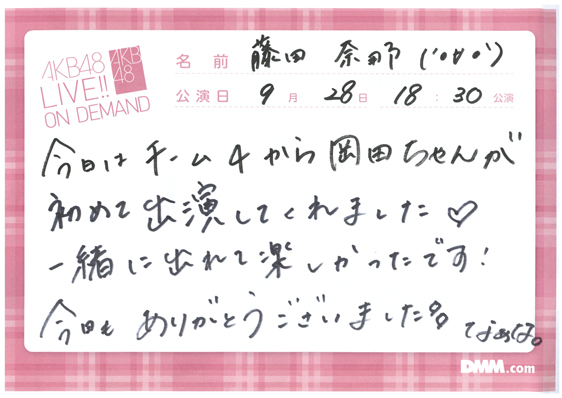 AKB48
LIVE!!
ON DEMAND
AKB
48
名前 藤田 奈那 ('•∀•')
公演日 9月 28日 18:30 公演
今日はチーム4から岡田ちゃんが
初めて出演してくれました♡
一緒に出れて楽しかったです!
今日も ありがとうございました なぁな。
DMM.com